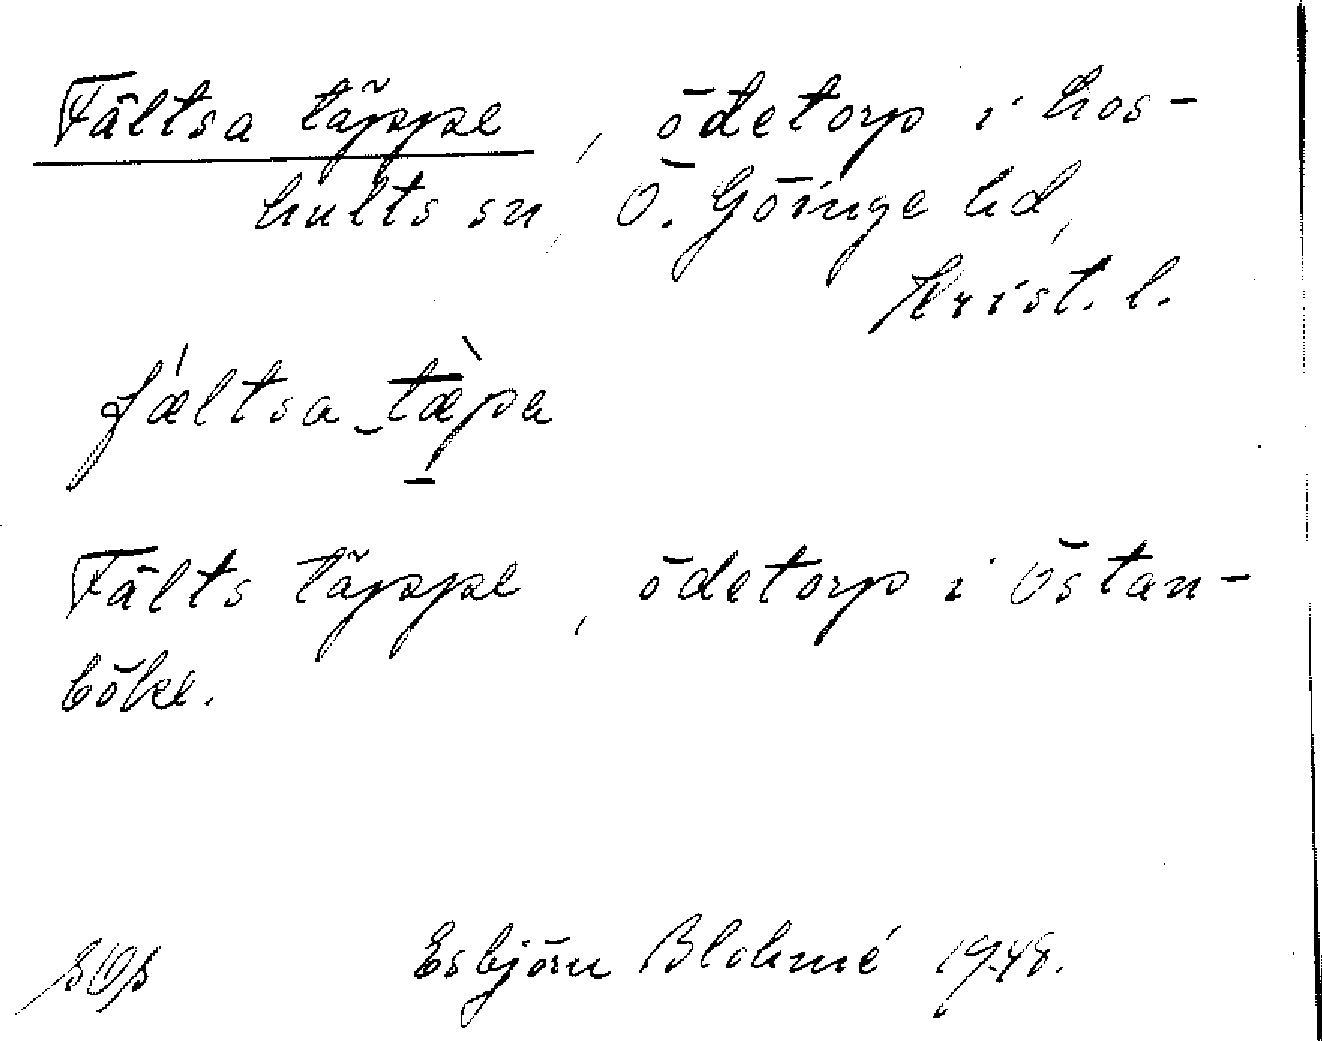 Fältsa täppe, ödetorp i hos-
hults sn, Ö. Göinge hd,
Krist. l.
fæltsa tæpa
Fälts täppe, ödetorp i Östan-
böke.
Esbjörn Blohmé 1948.